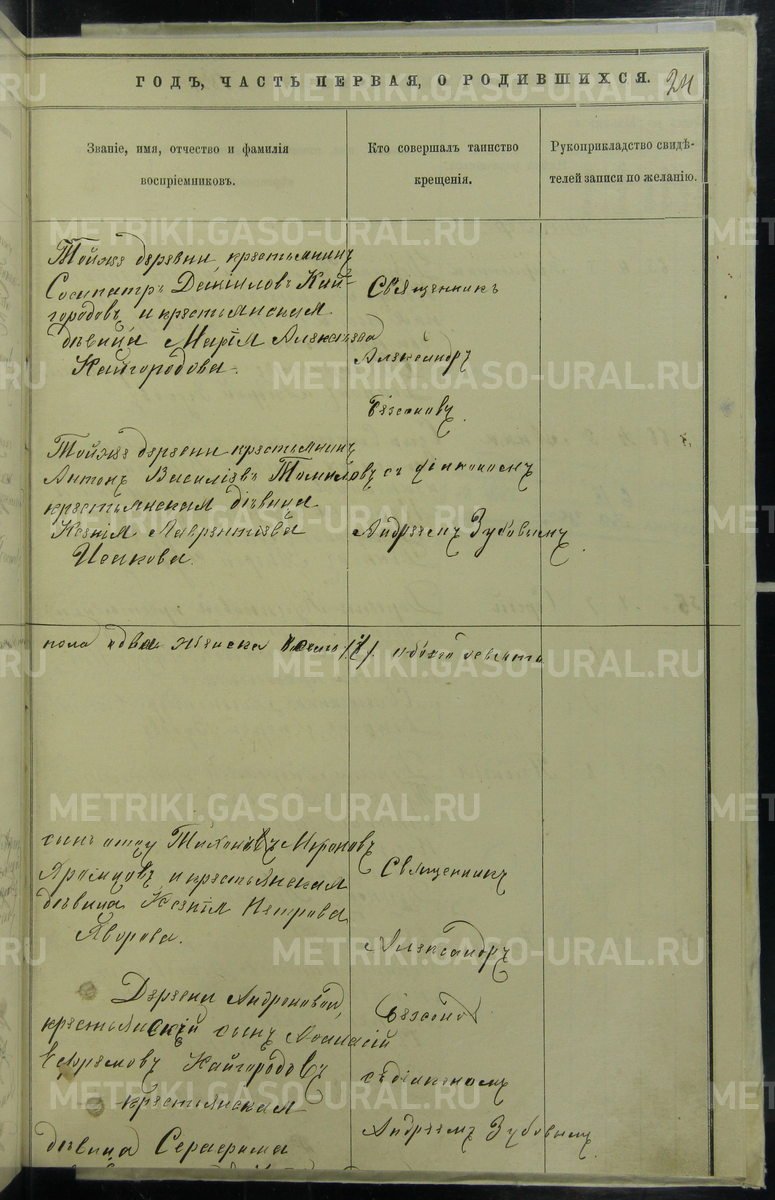 ГОДЪ, ЧАСТЬ ПЕРВАЯ, О РОДИВШИХСЯ.
24
Званіе, имя, отчество и фамилія
воспріемниковъ.
Кто совершалъ таинство
крещенія.
Рукоприкладство свидѣ-
телей записи по желанію.
Тойже деревни крестьянинъ
Сосипатръ Даніиловъ Кай-
городовъ и крестьянская
дѣвица Марія Алексѣева
Кайгородова.
Священникъ
Александръ
Тойже деревни крестьянинъ
Антонъ Василіевъ Томиловъ
крестьянская дѣвица
Ксенія Лаврентіева
Исакова.
съ діакономъ
Андреемъ Зубовымъ.
пола два женска
обоего девять
сынъ отцу Тихонъ Мироновъ
и крестьянская
дѣвица Ксенія Петрова
Яворова.
Священникъ
Александръ
Деревни Андроновой
крестьянскій сынъ Аѳанасій
Ефремовъ Кайгородовъ
крестьянская
дѣвица Серафима
съ діакономъ
Андреемъ Зубовымъ.
METRIKI.GASO-URAL.RU